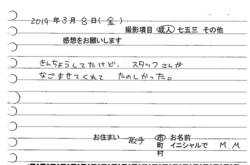 2019年3月8日(金)
撮影項目 成人 七五三 その他
感想をお願いします
きんちょうしてたけど、スタッフさんが
なごませてくれて たのしかった。
お住まい 取手 市 町 村 お名前 イニシャルで M.M